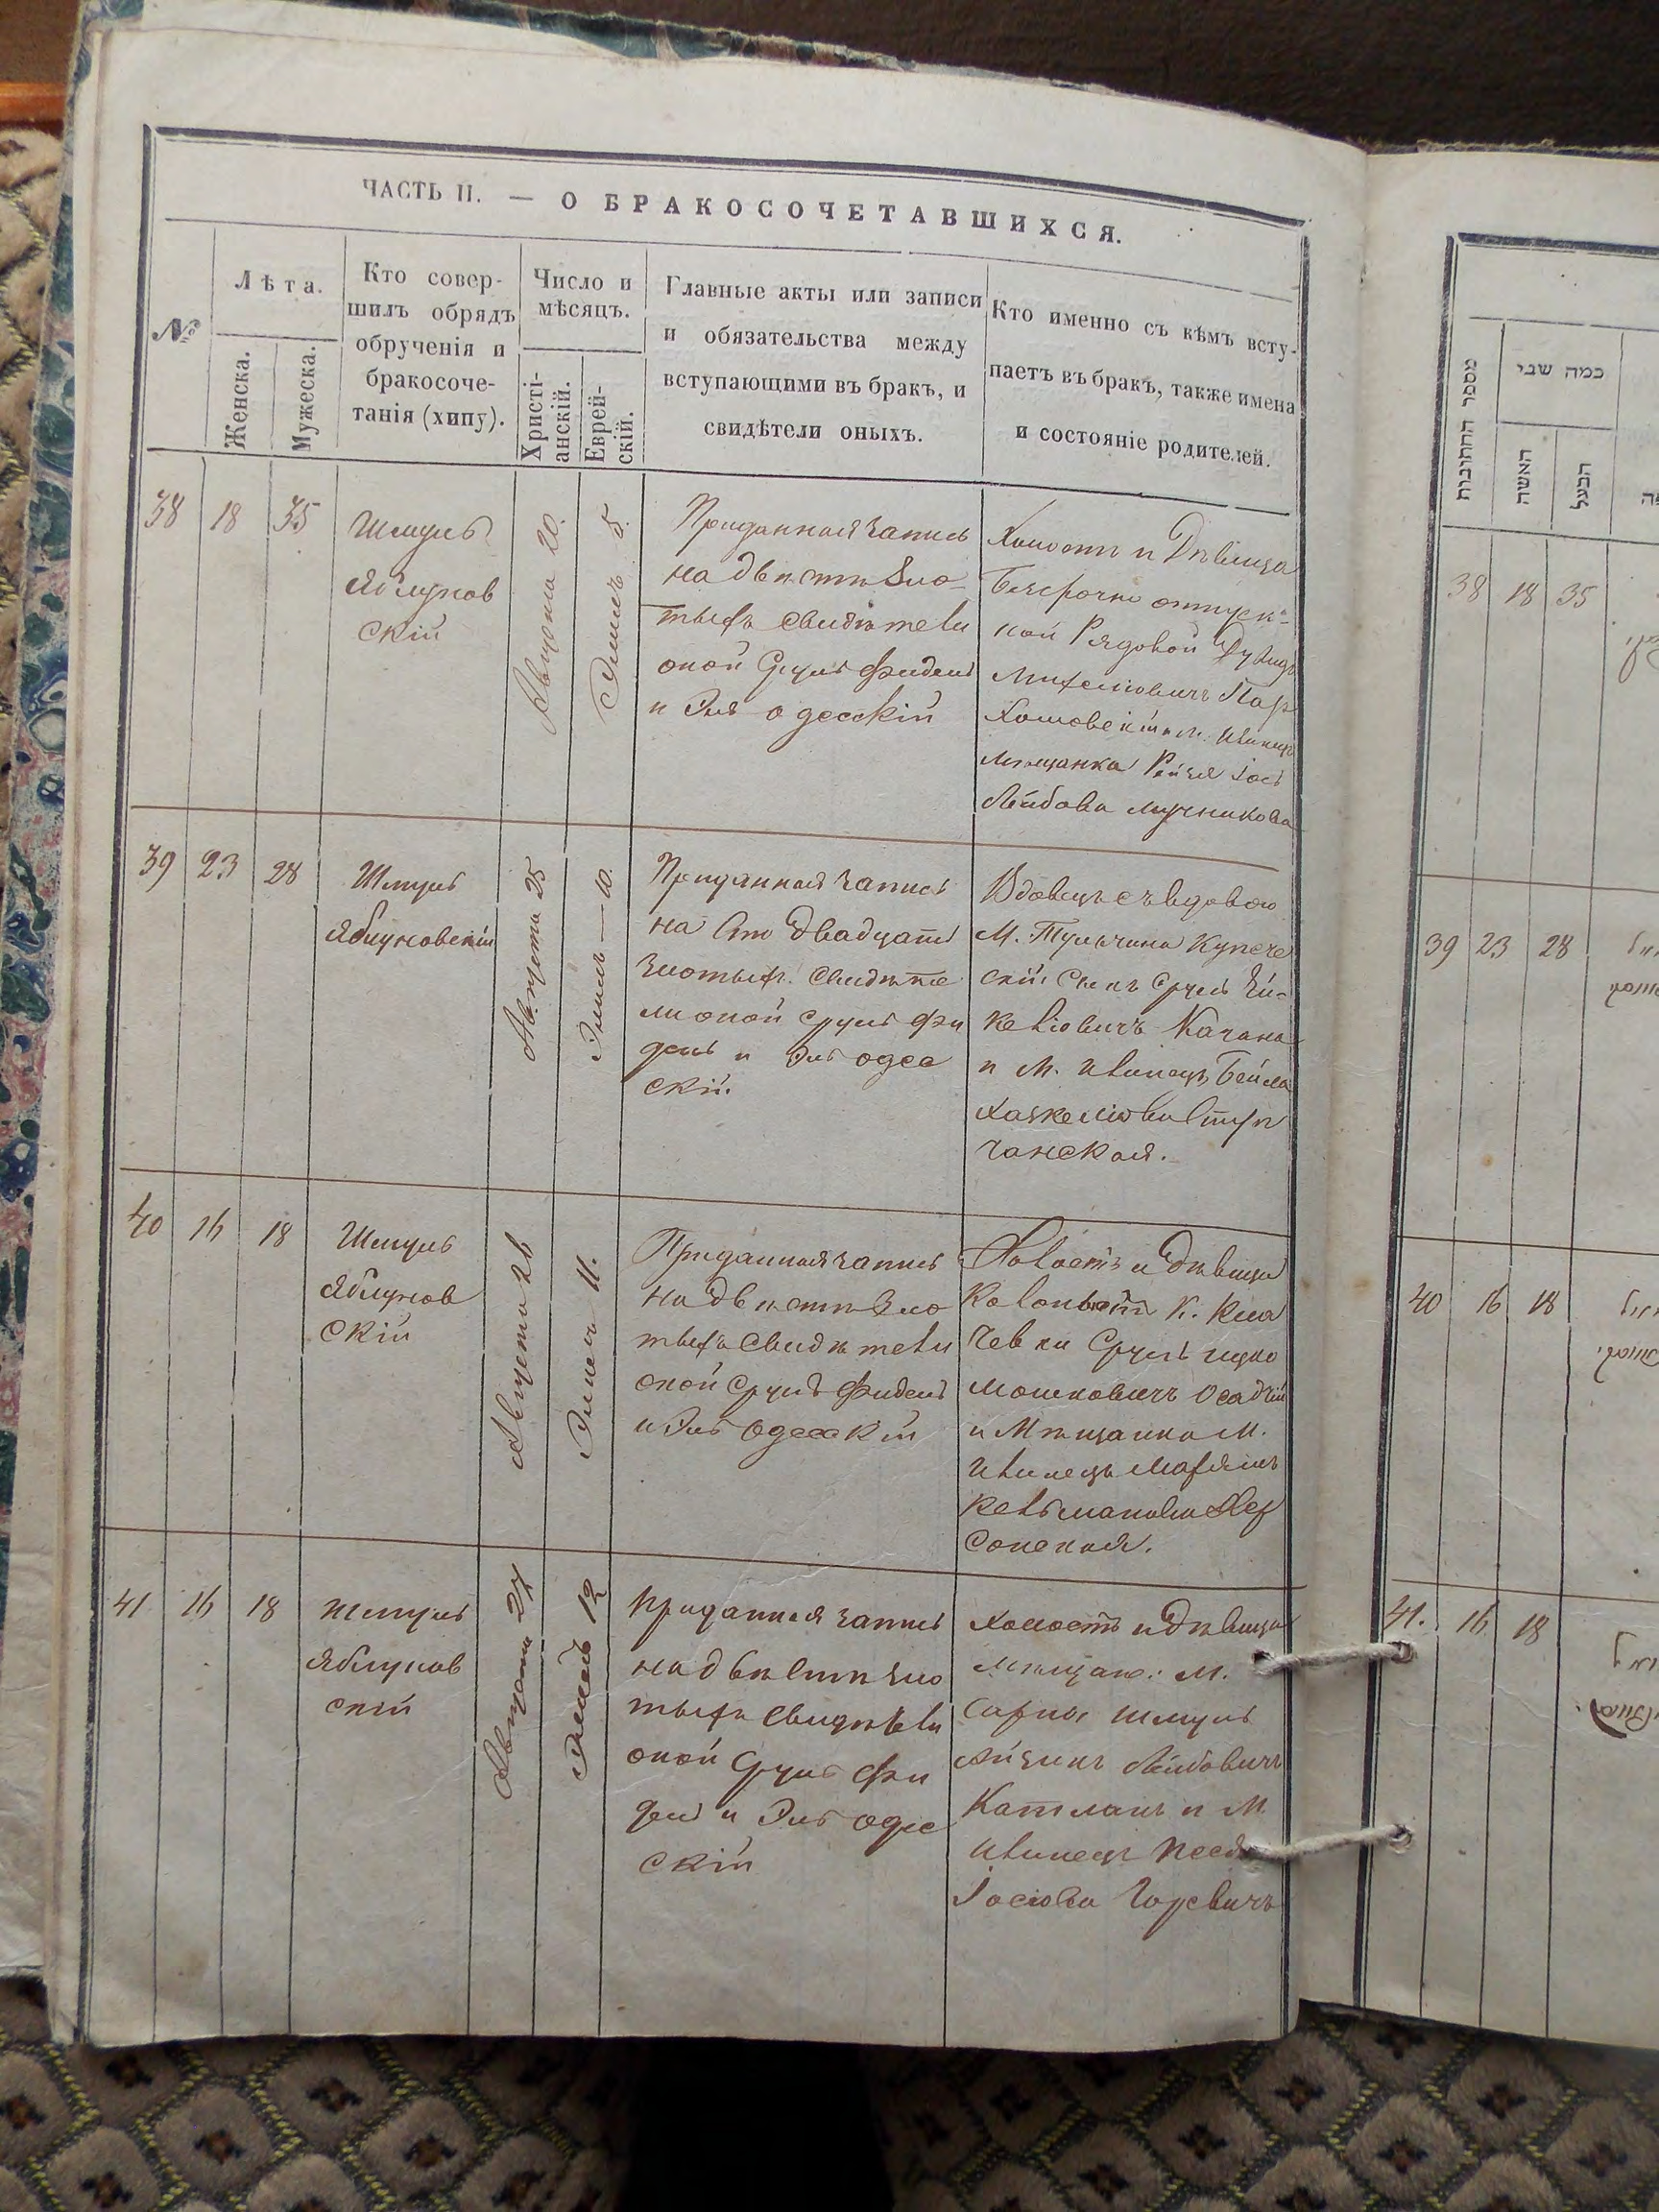 ЧАСТЬ II. — О БРАКОСОЧЕТАВШИХСЯ.
№
Лѣта.
Женска.
Мужеска.
Кто совер-
шилъ обрядъ
обрученія и
бракосоче-
танія (хипу).
Число и
мѣсяцъ.
Христі-
анскій.
Еврей-
скій.
Главные акты или записи
и обязательства между
вступающими въ бракъ, и
свидѣтели оныхъ.
Кто именно съ кѣмъ всту-
паетъ въ бракъ, также имена
и состояніе родителей.
38
18
35
Шмуль
Яблунов
скій
Августа 20.
Элиль 5.
Приданная запись
на двѣсти зло-
тыхъ свидѣтели
оной Сруль Фидель
и Эля Одесскій
Холостъ и Дѣвица
Безсрочно отпуск-
ной Рядовой
Михелiовичъ
м. Ивинецъ
Мѣщанка Рейзя Іось
Лейбова Мучникова
39
23
28
Шмуль
Яблуновскій
Августа 25
Элиль — 10.
Приданная запись
на Сто двадцать
злотыхъ. Свидѣте
ли оной Сруль Фи
дель и Эль Одес
скій.
Вдовецъ съ вдовою
М. Тульчина Купече
скій Сынъ Сруль
Качана
и М. Ивинецъ Бейла
Хаскелiова
чанская.
40
16
18
Шмуль
Яблунов
скій
Августа 26
Элиль 11.
Приданная запись
на двѣсти зло
тыхъ свидѣтели
оной Сруль Фидель
и Эль Одесскій
Холостъ и Дѣвица
Колонистъ К.
Сруль Ицко
Мошковичъ Осадчій
и Мѣщанка М.
Ивинецъ Марьямъ
Кельманова Хер
сонская.
41
16
18
Шмуль
Яблунов
скій
Августа 27
Элиль 12
Приданная запись
на двѣсти зло
тыхъ свидѣтели
оной Сруль Фи
дель и Эль Одес
скій
Холостъ и Дѣвица
Мѣщане: М.
Шмуль
Айзикъ Лейбовичъ
Катманъ и М.
Ивинецъ Песя
Іосіова Гуревичъ
מספר החתונות
כמה שני
האשה
הבעל
38
18
35
39
23
28
40
16
18
41.
16
18